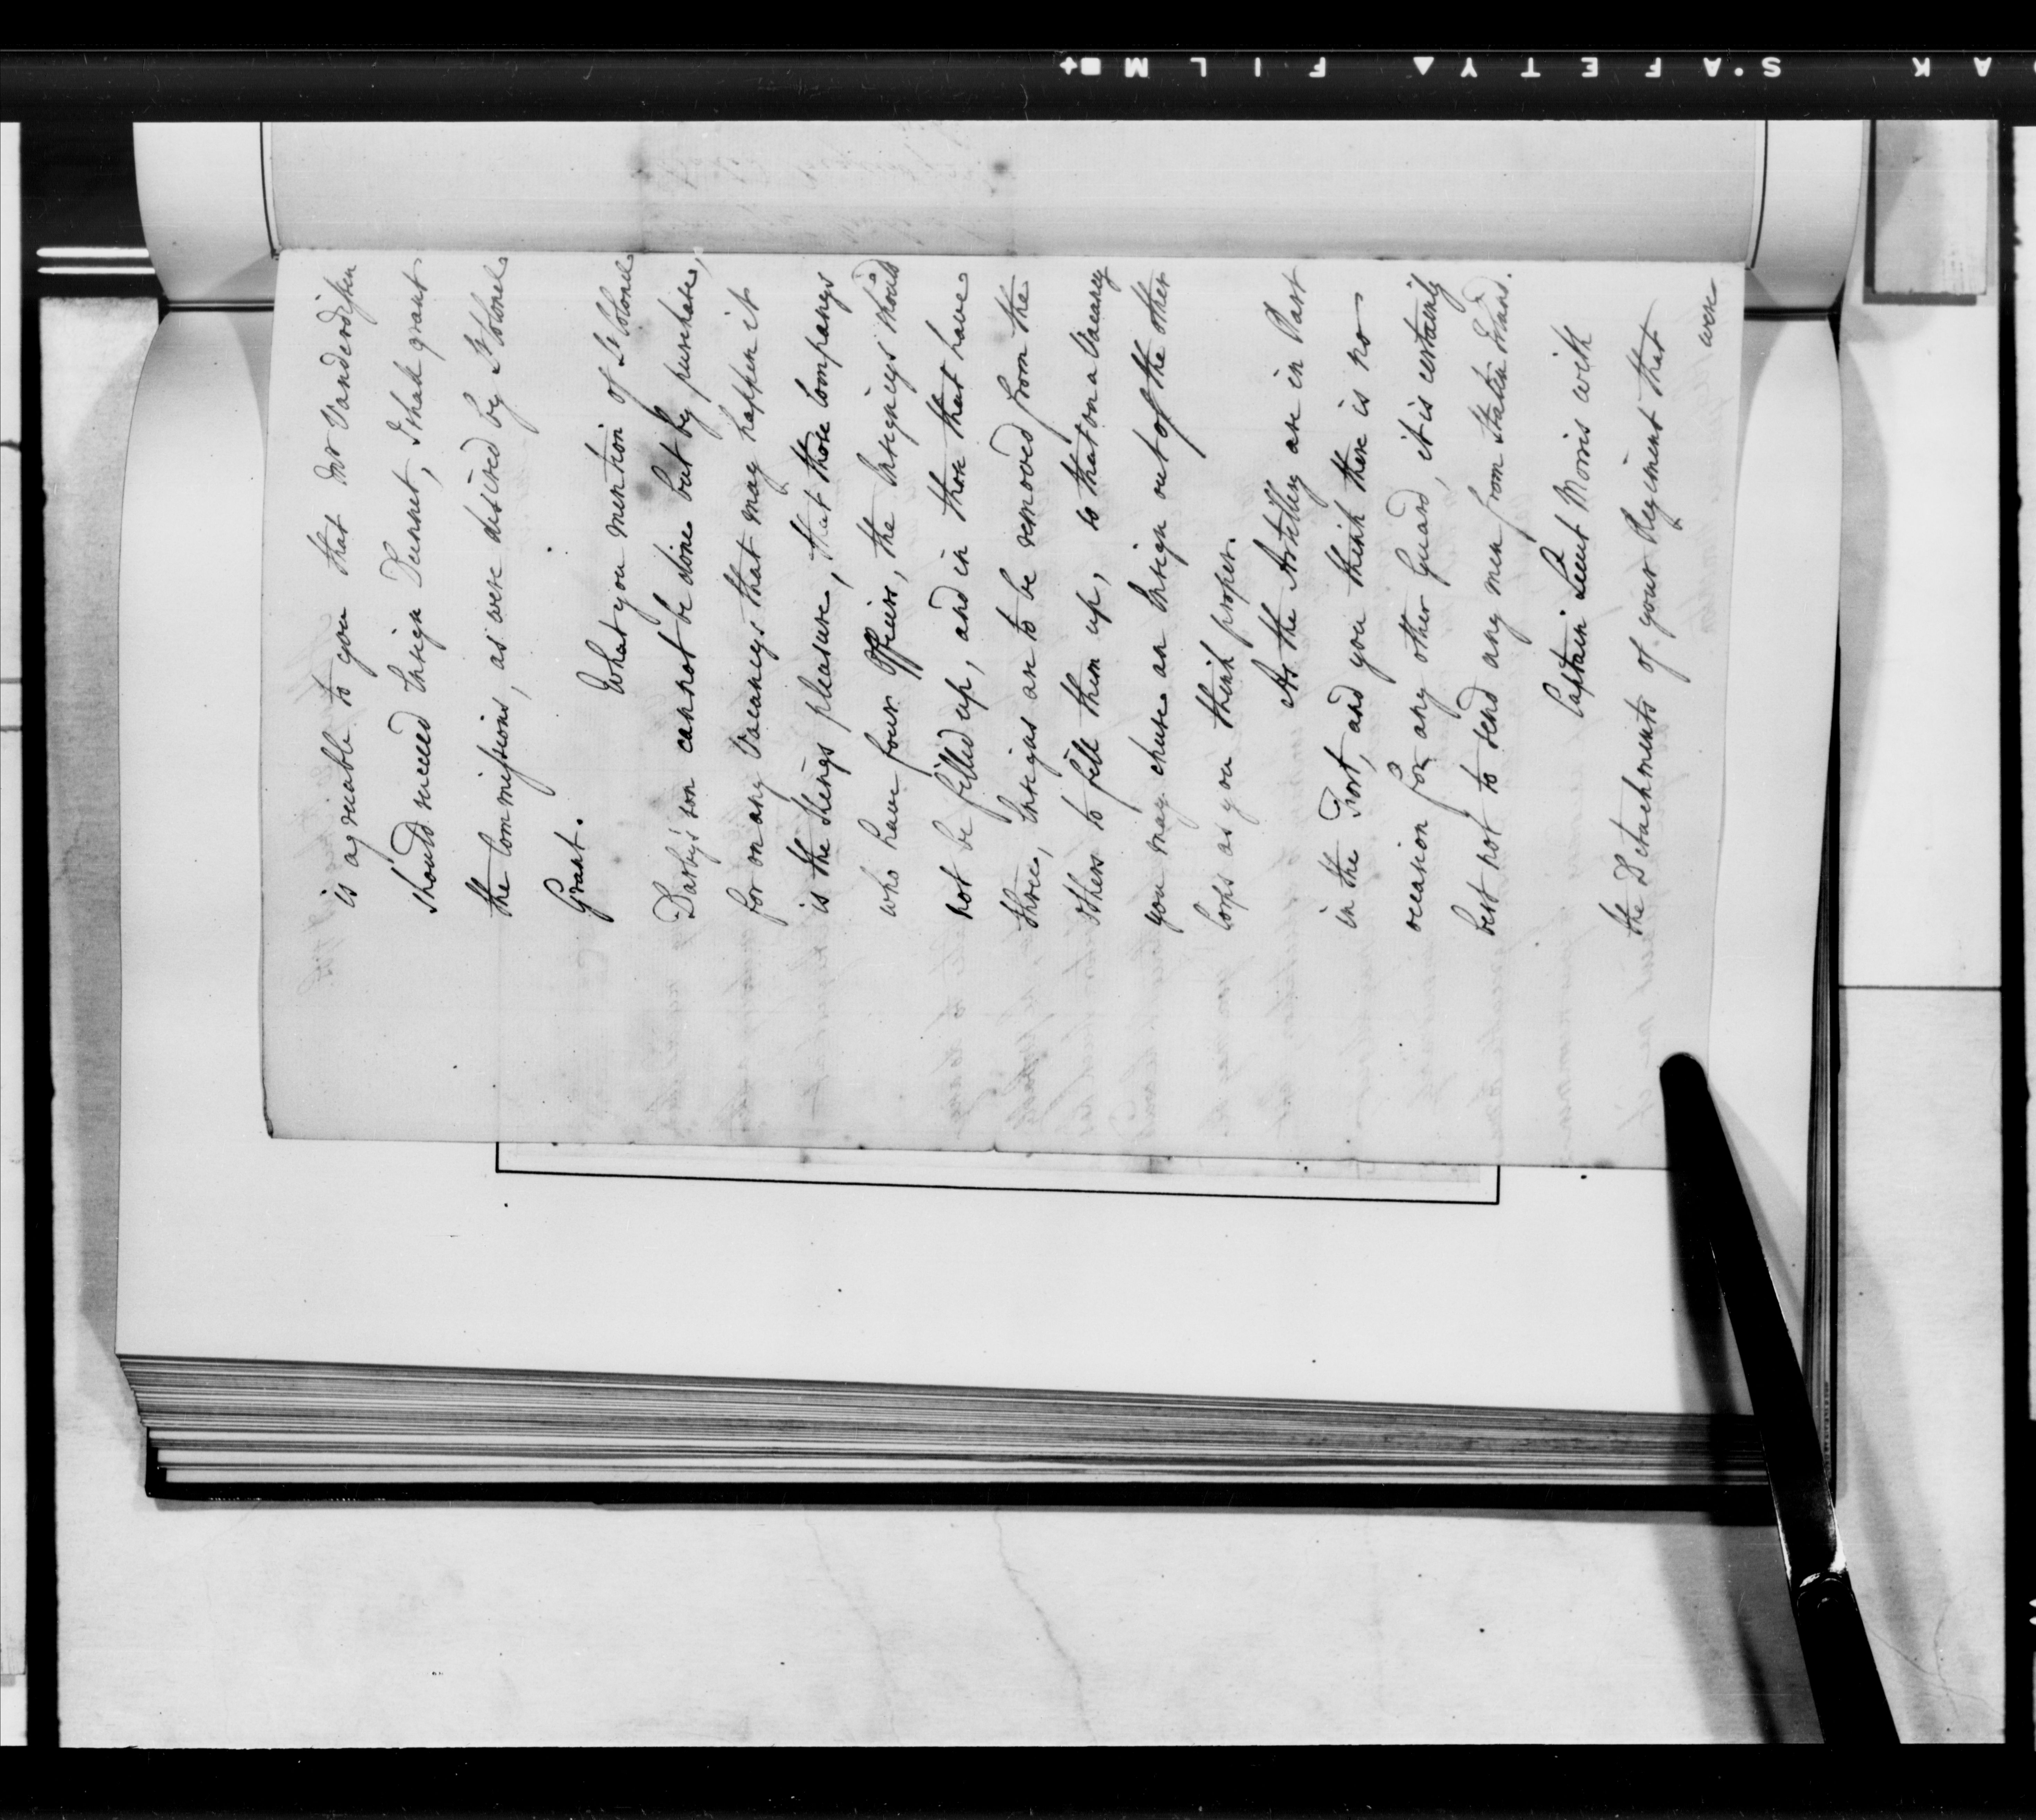 is agreeable to you that Mr Vanderdifsen
should succeed Ensign Dunnet, I shall grant
the Commissions, as were desired by Lt Colonel
Grant.
What you mention of Lt Colonel
Darby's son cannot be done but by purchase,
for on any Vacancys that may happen it
is the Kings pleasure, that those Companys
who have four Officers, the Ensigncys should
not be filled up, and in those that have
three, Ensigns are to be removed from the
others to fill them up, so that on a Vacancy
you may chuse an Ensign out of the other
Corps as you think proper.
As the Artillery are in Part
in the Fort, and you think there is no
occasion for any other Guard, it is certainly
best not to send any men from Staten Island.
Captain Lieut Morris with
the Detachments of your Regiment that
were
SAFETY FILM